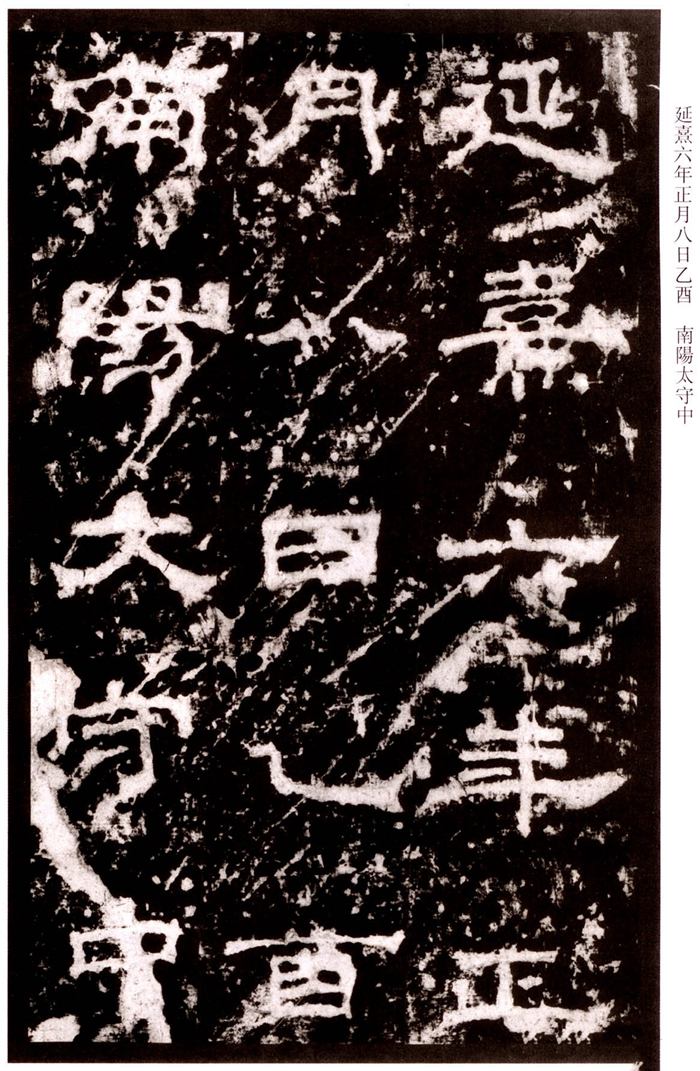 延熹六年正
月八日乙酉
南陽太守中
延熹六年正月八日乙酉　南陽太守中